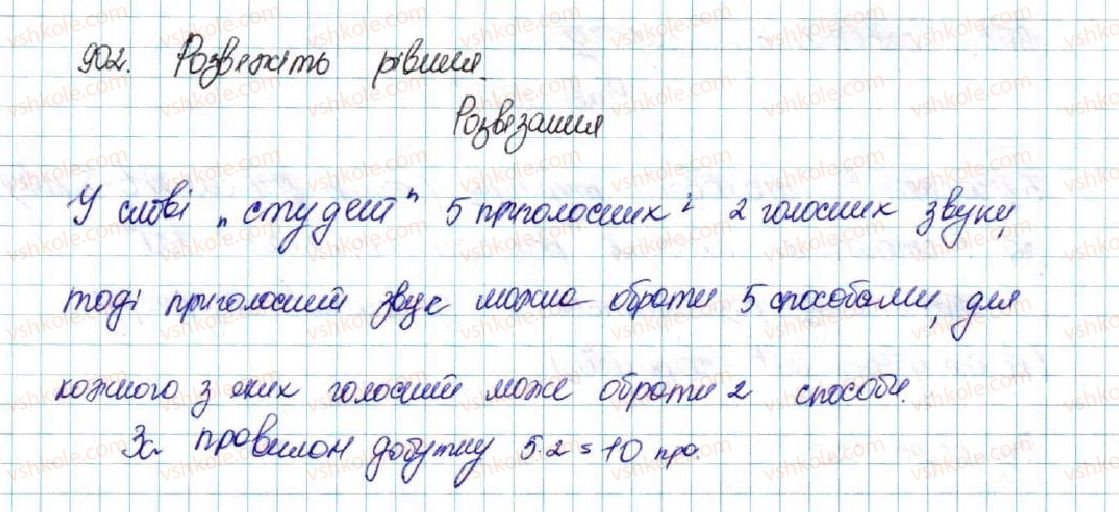 902. Розвяжіть рівння
Розвязання
У слові „студент" 5 приголосних і 2 голосних звуки,
тоді приголосний звук можна обрати 5 способами, для
кожного з яких голосний може обрати 2 способи.
За правилом добутку 5·2=10 пра.